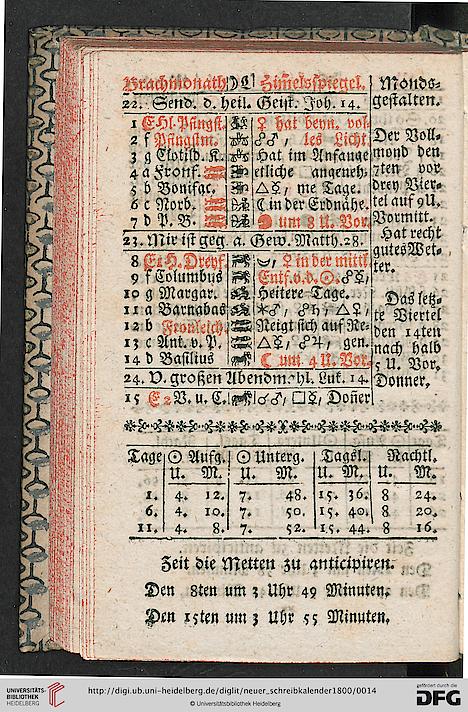 Brachmonath ☽L Himelsspiegel.
22. Send. d. heil. Geist. Joh. 14.
1 E Hl. Pfingst. ♀ hat beyn. vol-
2 f Pfingstm. ☍♂, les Licht.
3 g Clotild. K. Hat im Anfange
4 a Fronf. etliche angeneh-
5 b Bonifac. △☿, me Tage.
6 c Norb. ☾ in der Erdnähe.
7 d P. B. um 8 U. Vor.
23. Mir ist geg. a. Gew. Matth. 28.
8 E 1 H. Dreyf. ♀ in der mittl
9 f Columbus Entf. v. d. ☉. ☍☿,
10 g Margar. Heitere Tage.
11 a Barnabas ⚹♂, ☍♄, △♀,
12 b Fronleich. Neigt sich auf Re-
13 c Ant. v. P. △☿, ☍♃, gen.
14 d Basilius ☾ um 4 U. Vor.
24. V. großen Abendmahl. Luk. 14.
15 E 2 V. u. C. ☌♂, □☿, Doñer
Monds-
gestalten.
Der Voll-
mond den
7ten vor
drey Vier-
tel auf 9 U.
Vormitt.
Hat recht
gutes Wet-
ter.
Das letz-
te Viertel
den 14ten
nach halb
5 U. Vor.
Donner.
Tage ☉ Aufg. ☉ Unterg. Tagsl. Nachtl.
U. M. U. M. U. M. U. M.
1. 4. 12. 7. 48. 15. 36. 8 24.
6. 4. 10. 7. 50. 15. 40. 8 20.
11. 4. 8. 7. 52. 15. 44. 8 16.
Zeit die Metten zu anticipiren.
Den 8ten um 3 Uhr 49 Minuten.
Den 15ten um 3 Uhr 55 Minuten.
UNIVERSITÄTS-
BIBLIOTHEK
HEIDELBERG
http://digi.ub.uni-heidelberg.de/diglit/neuer_schreibkalender1800/0014
© Universitätsbibliothek Heidelberg
gefördert durch die
DFG